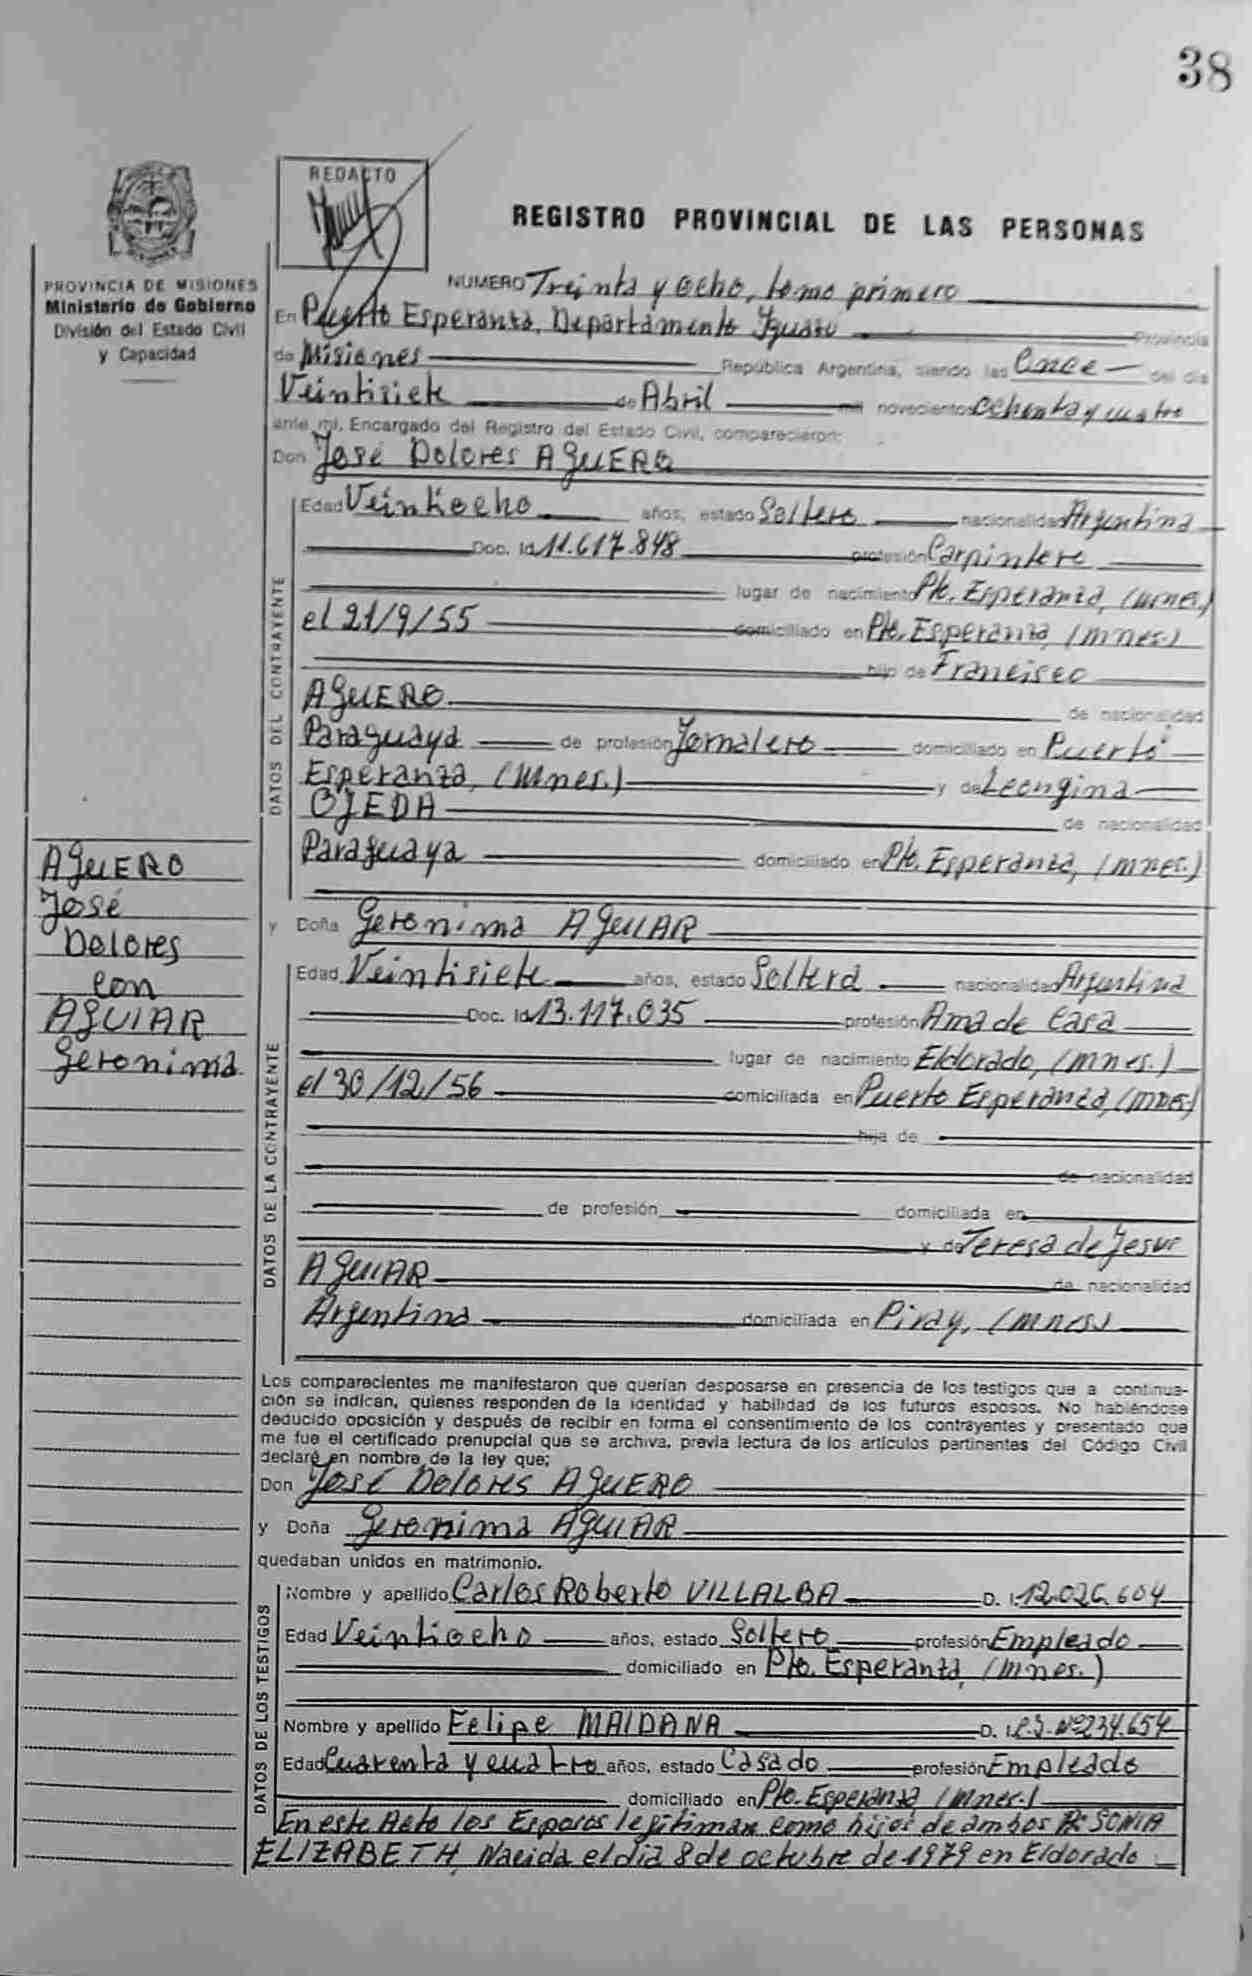 38
REDACTO
REGISTRO PROVINCIAL DE LAS PERSONAS
PROVINCIA DE MISIONES
Ministerio de Gobierno
División del Estado Civil
y Capacidad
NUMERO Treinta y ocho, tomo primero
En Puerto Esperanza, Departamento Iguazu Provincia
de Misiones República Argentina, siendo las Once del día
Veintisiete de Abril mil novecientos ochenta y cuatro
ante mí, Encargado del Registro del Estado Civil, comparecieron:
Don José Dolores AGUERO
DATOS DEL CONTRAYENTE
Edad Veintiocho años, estado Soltero nacionalidad Argentina
Doc. Id. 11.617.848 profesión Carpintero
lugar de nacimiento Pto. Esperanza, (mnes.)
el 21/9/55 domiciliado en Pto. Esperanza, (mnes.)
hijo de Francisco
AGUERO de nacionalidad
Paraguaya de profesión Jornalero domiciliado en Puerto
Esperanza, (mnes.) y de Leongina
OJEDA de nacionalidad
Paraguaya domiciliado en Pto. Esperanza, (mnes.)
AGUERO
José
Dolores
con
AGUIAR
Geronima
y Doña Geronima AGUIAR
DATOS DE LA CONTRAYENTE
Edad Veintisiete años, estado Soltera nacionalidad Argentina
Doc. Id. 13.117.035 profesión Ama de Casa
lugar de nacimiento Eldorado, (mnes.)
el 30/12/56 domiciliada en Puerto Esperanza, (mnes)
hija de
de nacionalidad
de profesión domiciliada en
y de Teresa de Jesus
AGUIAR de nacionalidad
Argentina domiciliada en Piray, (mnes)
Los comparecientes me manifestaron que querían desposarse en presencia de los testigos que a continua-
ción se indican, quienes responden de la identidad y habilidad de los futuros esposos. No habiéndose
deducido oposición y después de recibir en forma el consentimiento de los contrayentes y presentado que
me fue el certificado prenupcial que se archiva, previa lectura de los artículos pertinentes del Código Civil
declaré en nombre de la ley que;
Don José Dolores AGUERO
y Doña Geronima AGUIAR
quedaban unidos en matrimonio.
DATOS DE LOS TESTIGOS
Nombre y apellido Carlos Roberto VILLALBA D. I. 12.026.604
Edad Veintiocho años, estado Soltero profesión Empleado
domiciliado en Pto. Esperanza, (mnes.)
Nombre y apellido Felipe MAIDANA D. I. Nº234.654
Edad Cuarenta y cuatro años, estado Casado profesión Empleado
domiciliado en Pto. Esperanza (mnes.)
En este Acto los Esposos legitiman como hijos de ambos a: SONIA
ELIZABETH, Nacida el dia 8 de octubre de 1979 en Eldorado